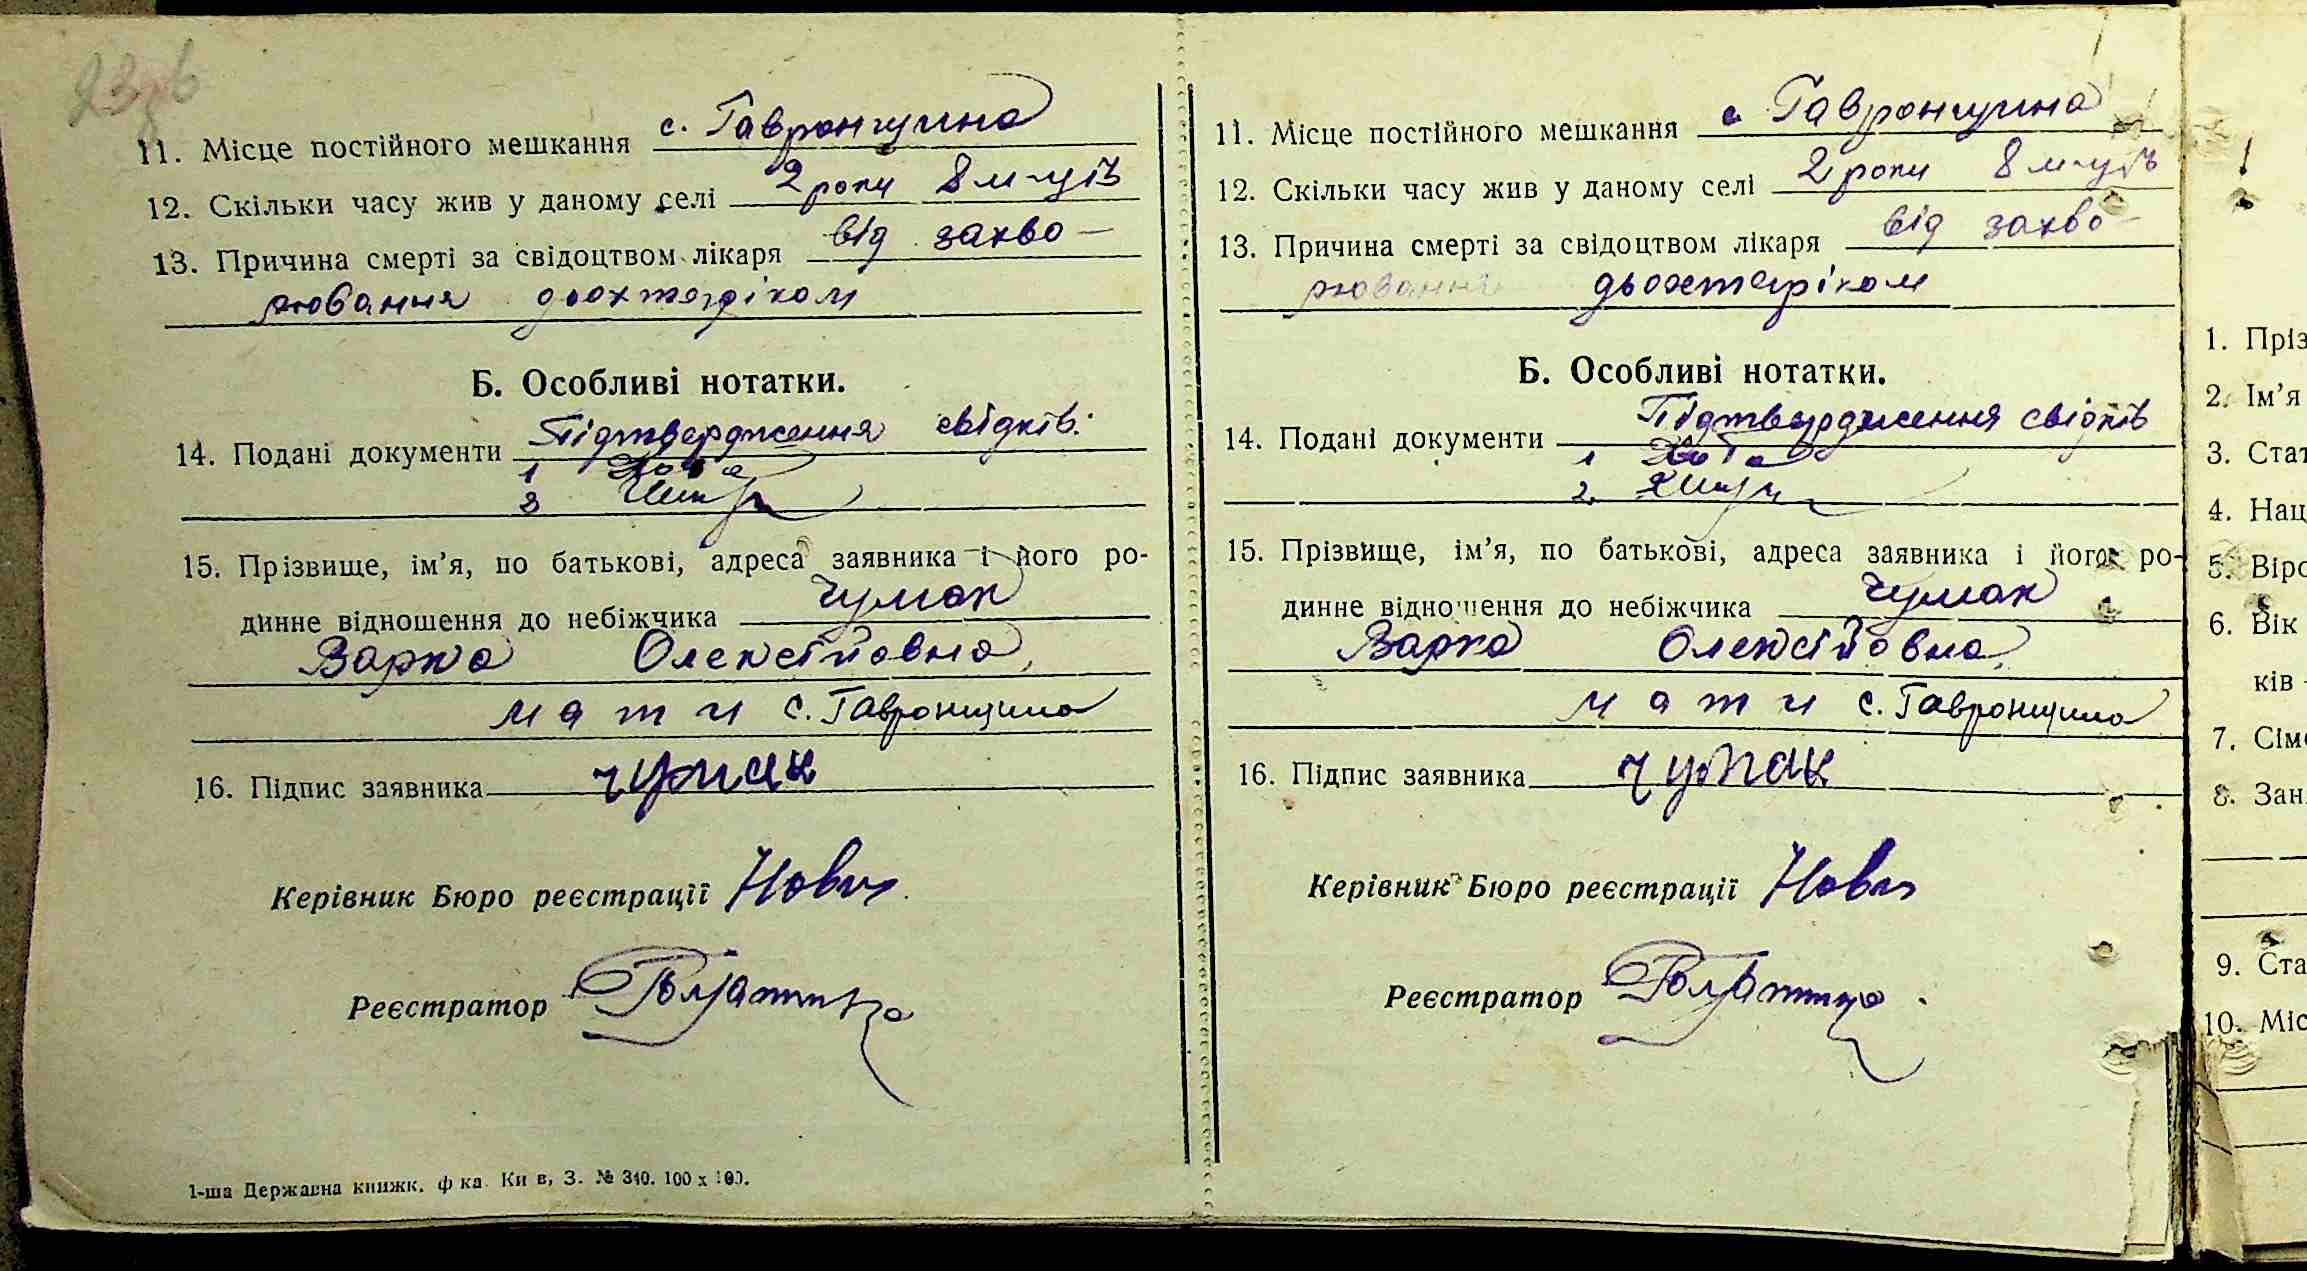 11. Місце постійного мешкання с. Гавронщина
12. Скільки часу жив у даному селі 2 роки 8 м-ців
13. Причина смерті за свідоцтвом лікаря від захво-
рювання дьохтеріком
Б. Особливі нотатки.
14. Подані документи Підтвердження свідків:
1
2
15. Прізвище, ім'я, по батькові, адреса заявника і його ро-
динне відношення до небіжчика Чумак
Варка Олексійовна,
мати с. Гавронщина
16. Підпис заявника Чумак
Керівник Бюро реєстрації
Реєстратор
1-ша Державна книжк. ф ка. Ки в, З. № 340. 100 х 100.
11. Місце постійного мешкання с. Гавронщина
12. Скільки часу жив у даному селі 2 роки 8 м-ців
13. Причина смерті за свідоцтвом лікаря від захво-
рювання дьохтеріком
Б. Особливі нотатки.
14. Подані документи Підтвердження свідків
1
2.
15. Прізвище, ім'я, по батькові, адреса заявника і його ро-
динне відношення до небіжчика Чумак
Варка Олексійовна,
мати с. Гавронщина
16. Підпис заявника Чумак
Керівник Бюро реєстрації
Реєстратор
1. Пріз
2. Ім'я
3. Стат
4. Нац
5. Віро
6. Вік
ків
7. Сім
8. Зан
9. Ста
10. Міс